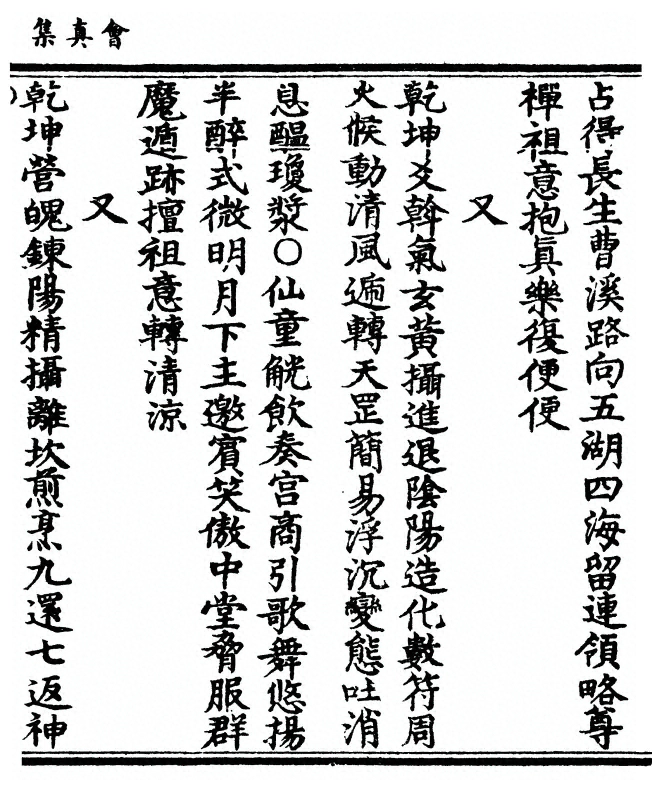 會真集
占得長生曹溪路向五湖四海留連領略尊
禪祖意抱眞樂復便便
又
乾坤爻斡氣玄黃攝進退陰陽造化數符周
火候動清風遞轉天罡簡易浮沉變態吐消
息醖瓊漿〇仙童觥飲奏宮商引歌舞悠揚
半醉式微明月下主邀賓笑傲中堂脅服群
魔遁跡擅祖意轉清涼
又
乾坤營魄鍊陽精攝離坎煎烹九還七返神